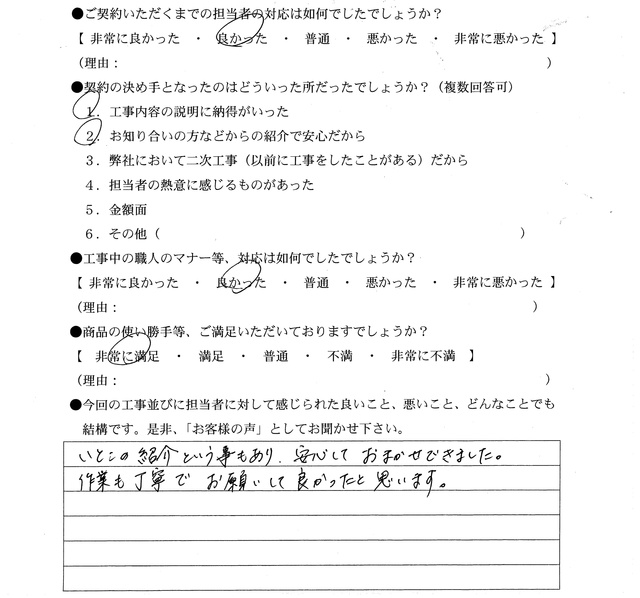 ●ご契約いただくまでの担当者の対応は如何でしたでしょうか？
【 非常に良かった ・ 良かった ・ 普通 ・ 悪かった ・ 非常に悪かった 】
（理由： ）
●契約の決め手となったのはどういった所だったでしょうか？（複数回答可）
１．工事内容の説明に納得がいった
２．お知り合いの方などからの紹介で安心だから
３．弊社において二次工事（以前に工事をしたことがある）だから
４．担当者の熱意に感じるものがあった
５．金額面
６．その他（ ）
●工事中の職人のマナー等、対応は如何でしたでしょうか？
【 非常に良かった ・ 良かった ・ 普通 ・ 悪かった ・ 非常に悪かった 】
（理由： ）
●商品の使い勝手等、ご満足いただいておりますでしょうか？
【 非常に満足 ・ 満足 ・ 普通 ・ 不満 ・ 非常に不満 】
（理由： ）
●今回の工事並びに担当者に対して感じられた良いこと、悪いこと、どんなことでも
結構です。是非、「お客様の声」としてお聞かせ下さい。
いとこの紹介という事もあり、安心しておまかせできました。
作業も丁寧でお願いして良かったと思います。